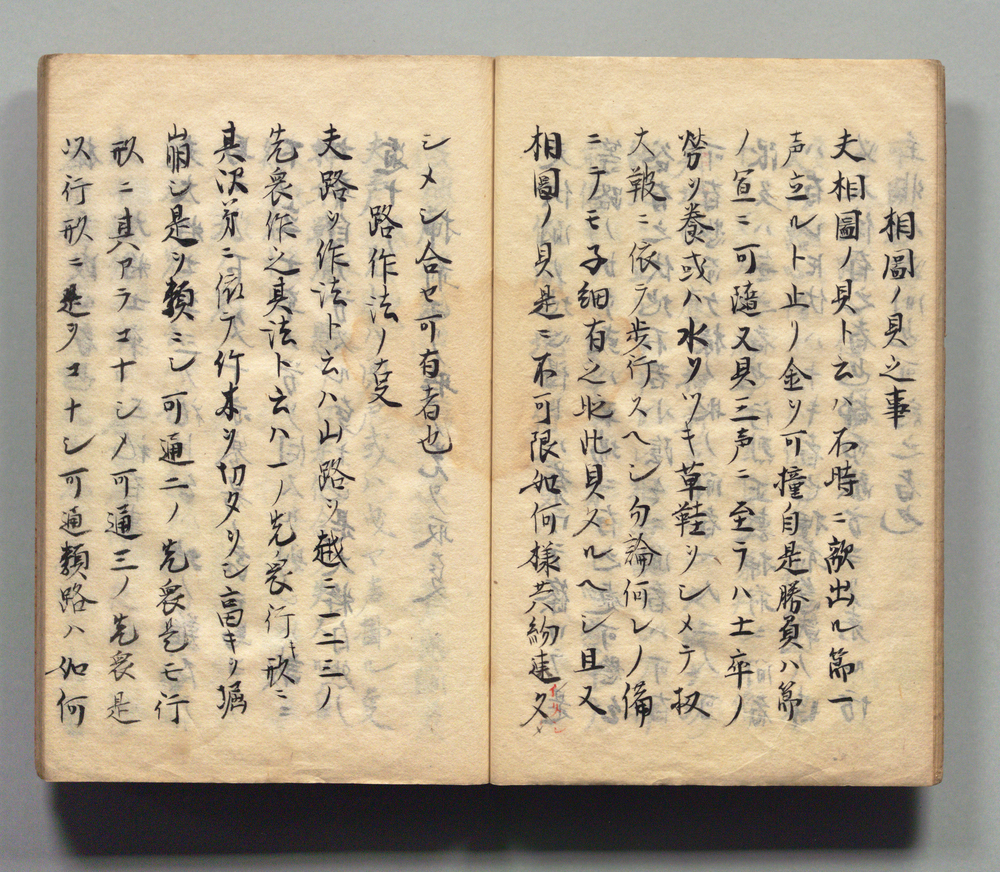 相圖ノ貝之事
夫相圖ノ貝ト云ハ不時ニ敵出ル節一
声立ルト止リ金ヲ可撞自是勝負ハ節
ノ宣ニ可隨又貝三声ニ至ラハ士卒ノ
勞ヲ養或ハ水ヲツキ草鞋ヲシメテ扨
大鞁ニ依テ歩行スヘシ勿論何レノ備
ニテモ子細有之此貝スルヘシ且又
相圖ノ貝是ニ不可限如何樣共約速タ
シメシ合セ可有者也
路作法ノ叓
夫路ヲ作法ト云ハ山路ヲ越ニ一二三ノ
先衆作之其法ト云ハ一ノ先衆行形ニ
其次第ニ依テ竹木ヲ切タリシ高キヲ堀
崩シ是ヲ類ミシ可通二ノ先衆是モ行
形ニ其アラコナシメ可通三ノ先衆是
以行形ニ是ヲコナシ可通類路ハ如何